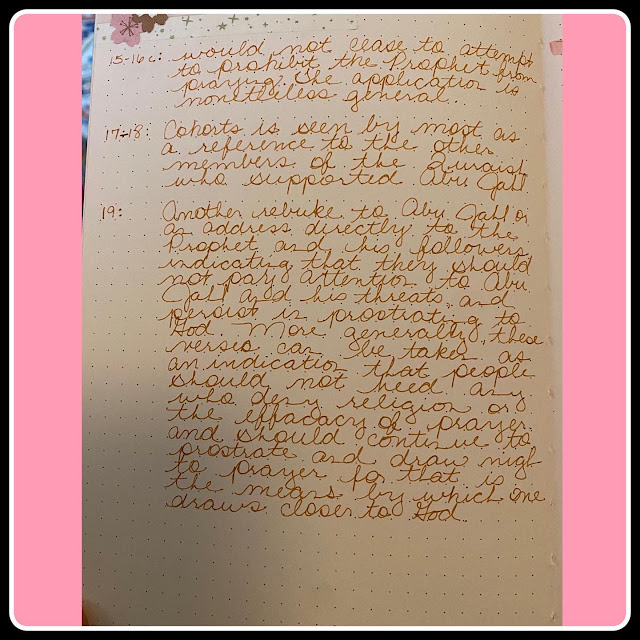 15-16c: would not cease to attempt
to prohibit the Prophet from
praying. The application is
nonetheless general.
17-18: Cohorts is seen by most as
a reference to the other
members of the Quraish
who supported Abu Jahl
19: Another rebuke to Abu Jahl or
an address directly to the
Prophet and his followers
indicating that they should
not pay attention to Abu
Jahl and his threats, and
persist in prostrating to
God. More generally, these
verses can be taken as
an indication that people
should not heed any
who deny religion or
the effacacy of prayer
and should continue to
prostrate and draw nigh
to prayer for that is
the means by which one
draws closer to God.